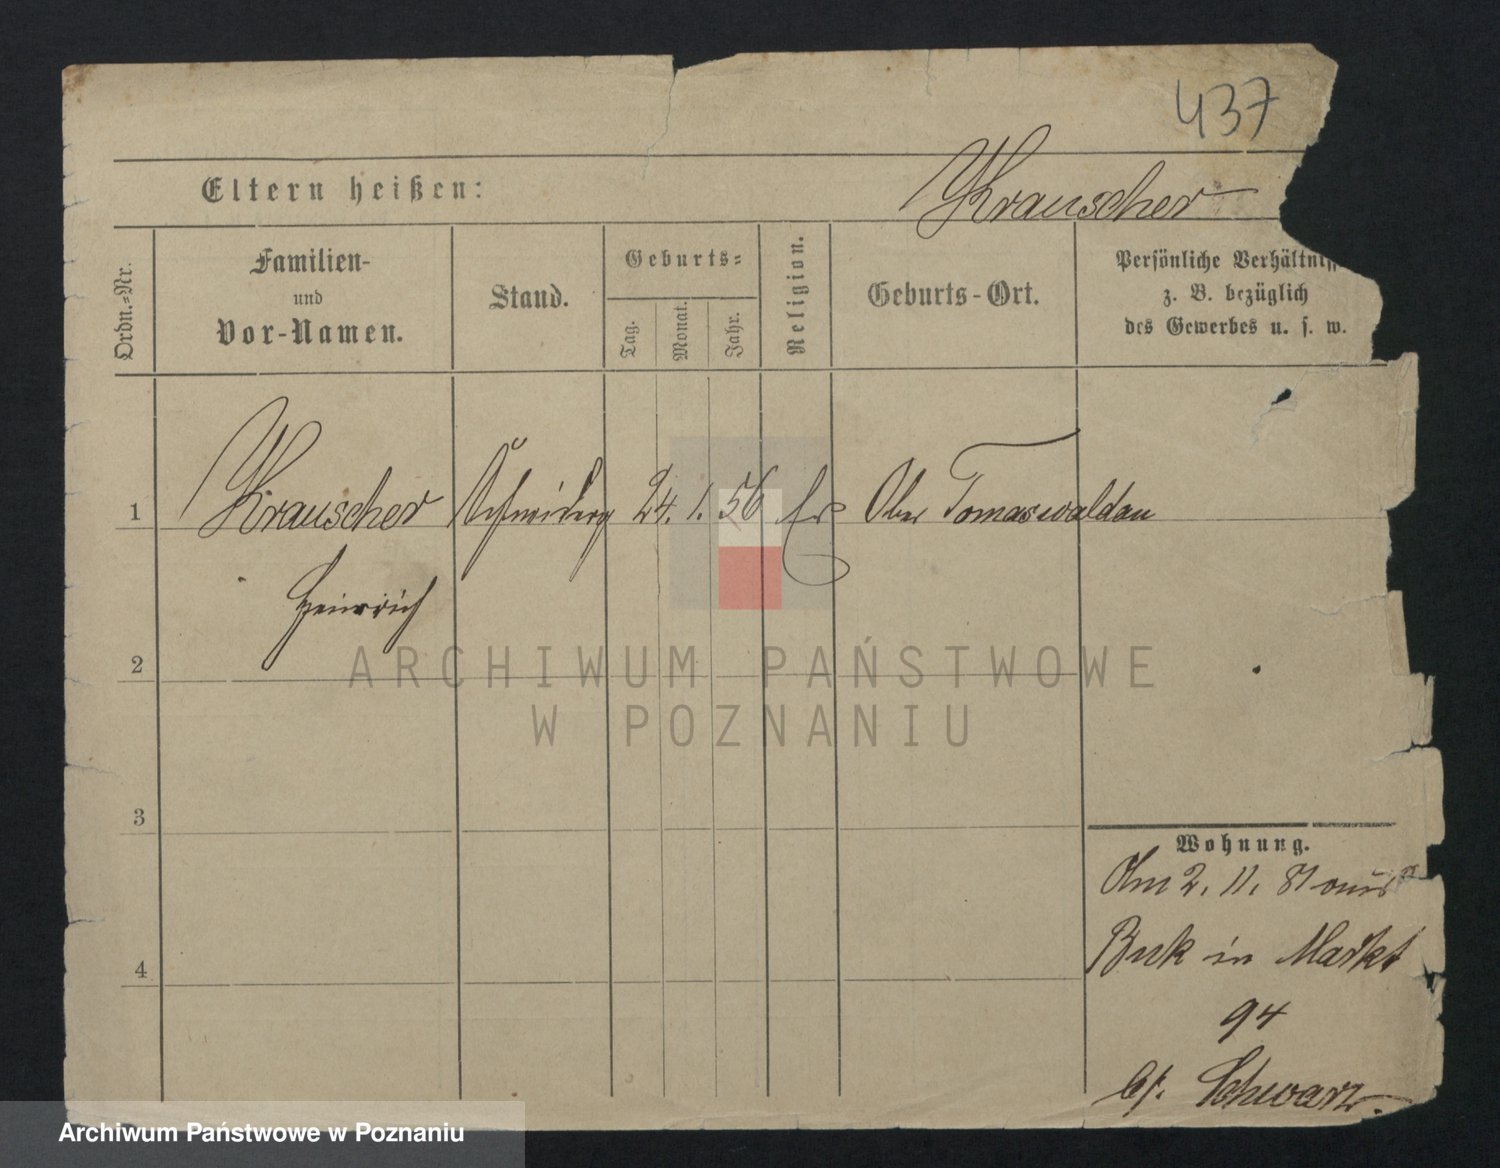 437
Eltern heißen:
Krauscher
Ordn.-Nr.
Familien-
und
Vor-Namen.
Stand.
Geburts-
Tag.
Monat.
Jahr.
Religion.
Geburts-Ort.
Persönliche Verhältniss
z. B. bezüglich
des Gewerbes u. s. w.
1
Krauscher
24. 1. 56
Ober Tomaswaldau
Heinrich
2
ARCHIWUM PAŃSTWOWE
W POZNANIU
3
Wohnung.
Am 2. 11. 81 aus
4
Buk in Markt
94
bei Schwarz.
Archiwum Państwowe w Poznaniu